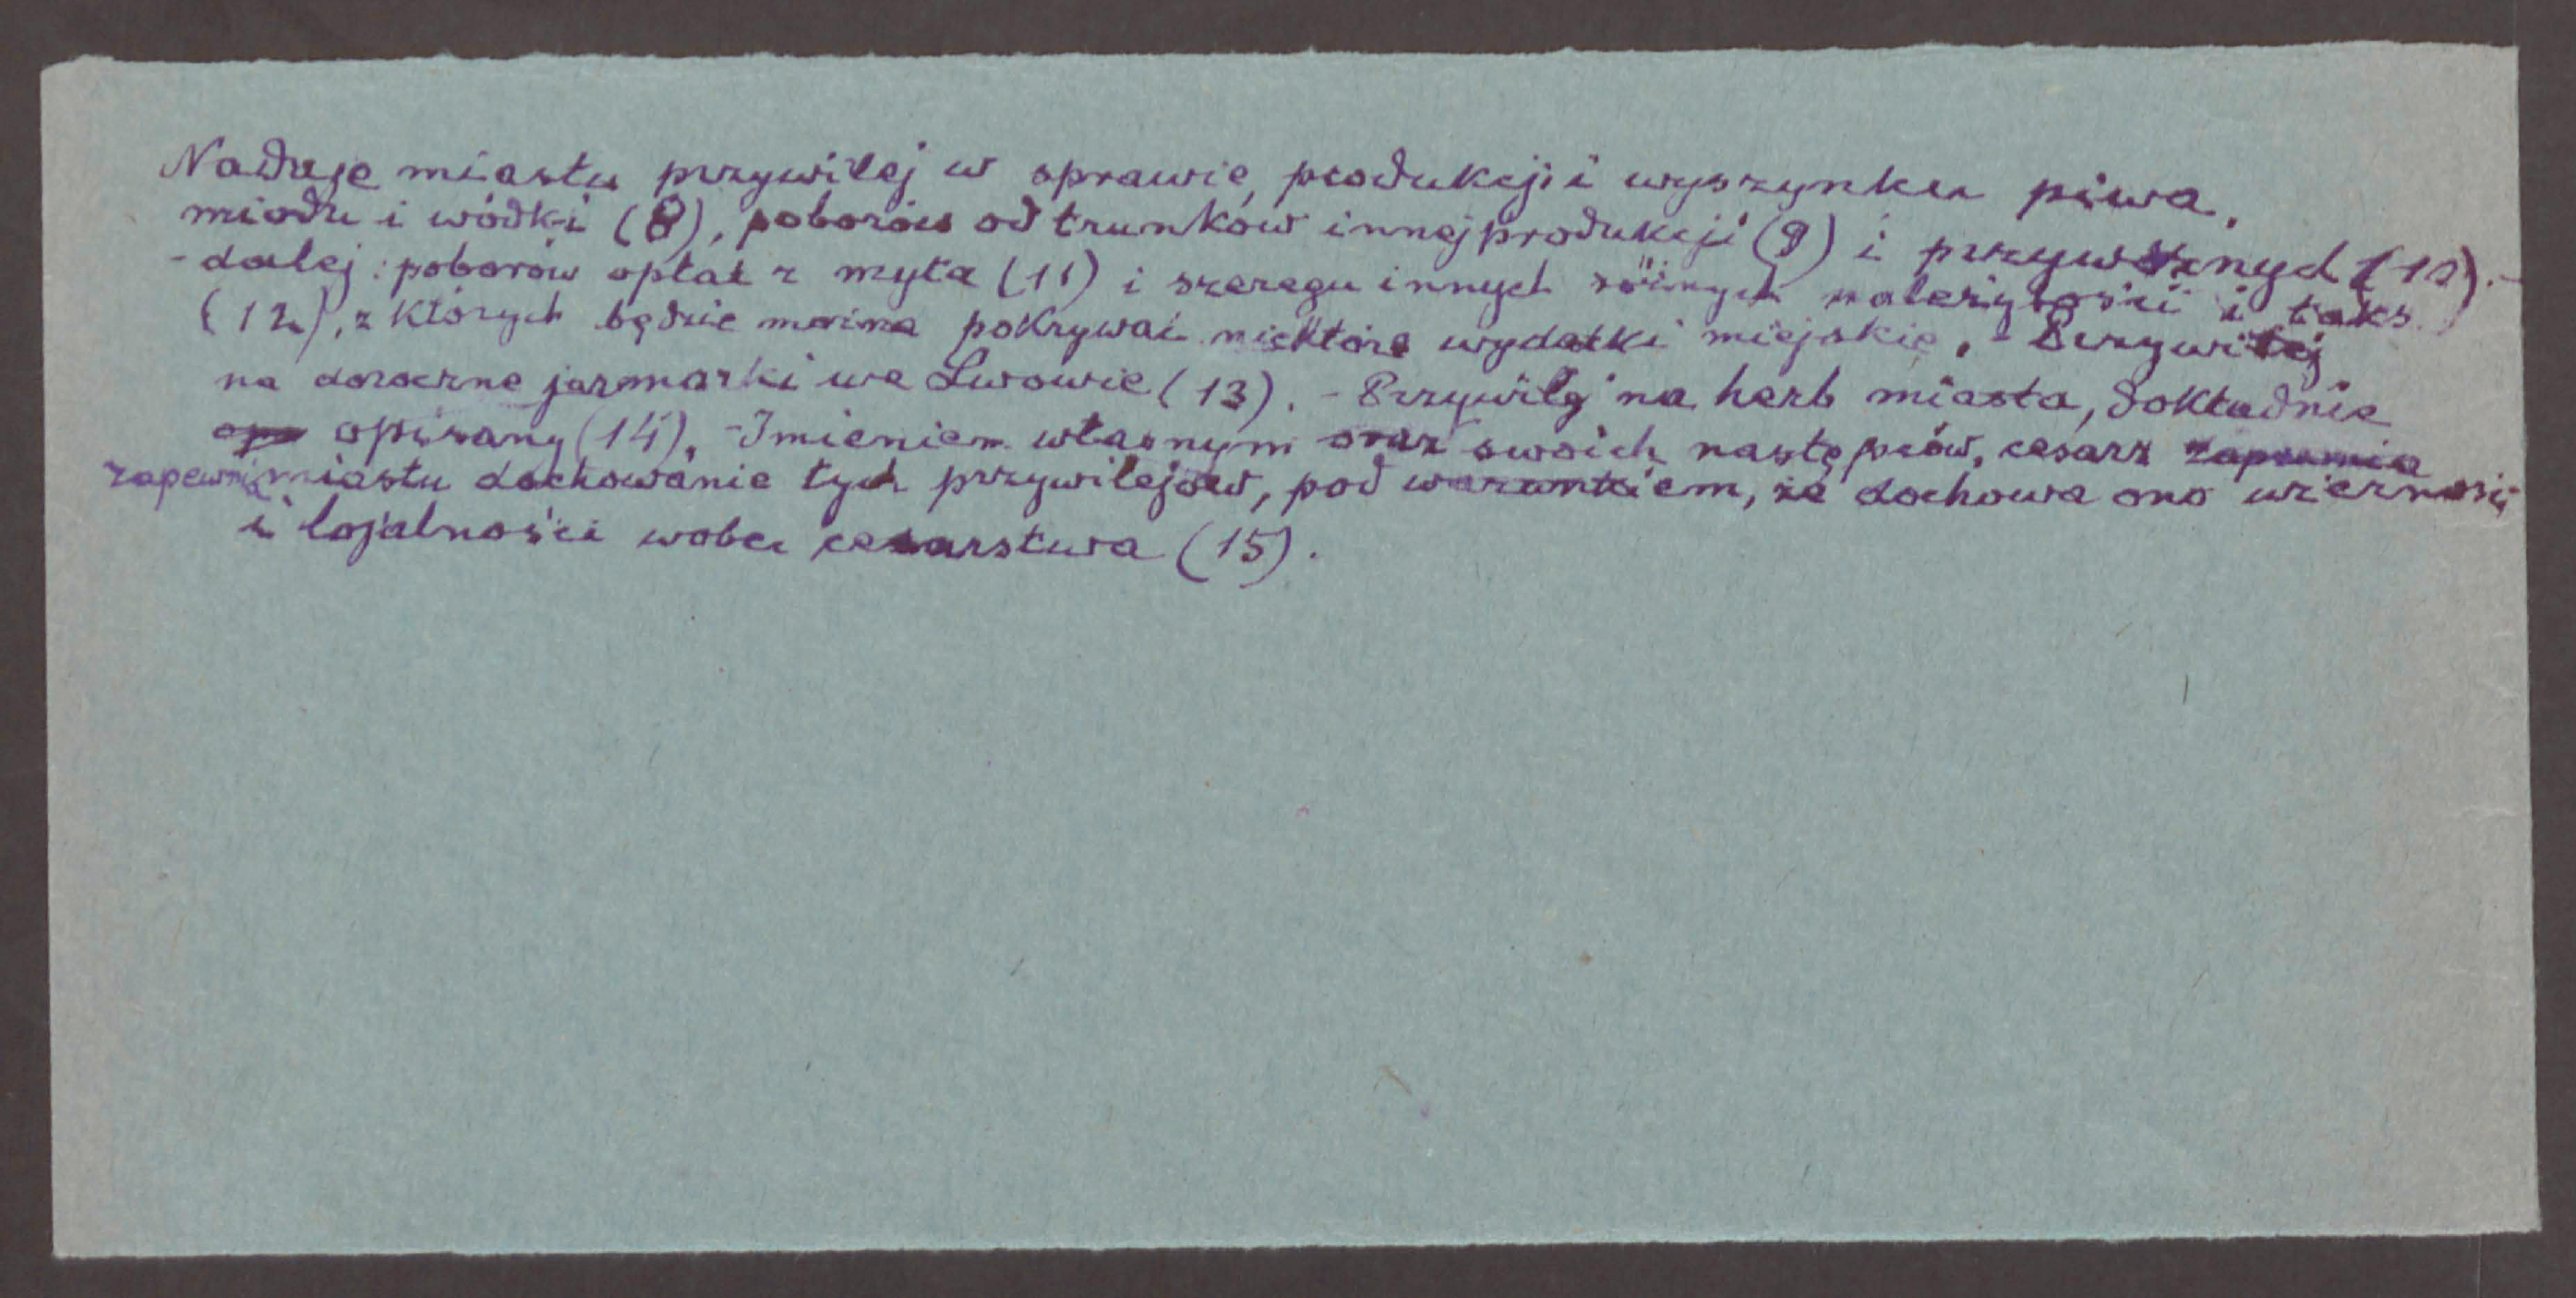 Nadaje miastu przywilej w sprawie produkcji i wyszynku piwa,
miodu i wódki (8), poborów od trunków innej produkcji (9) i przywoznych (10). -
- dalej: poborów opłat z myta (11) i szeregu innych różnych należytości i taks
(12), z których będzie można pokrywać niektóre wydatki miejskie. - Przywilej
na doroczne jarmarki we Lwowie (13). - Przywilej na herb miasta, dokładnie
opisany (14). - Imieniem własnym oraz swoich następców, cesarz zapewnia
zapewnia miastu dochowanie tych przywilejów, pod warunkiem, że dochowa ono wierności
i lojalności wobec cesarstwa (15).